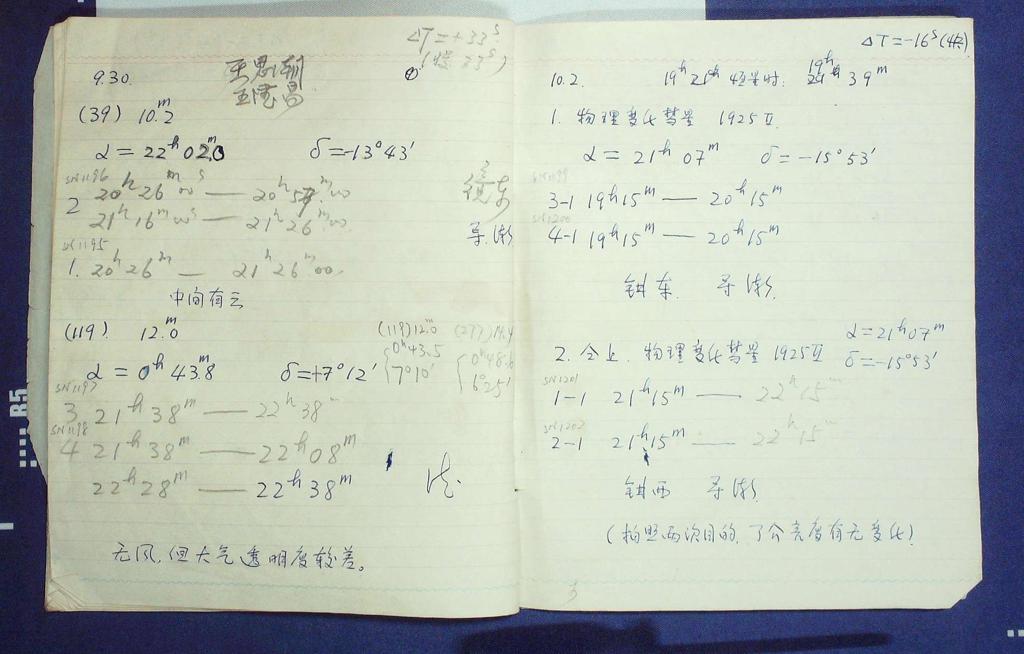 ΔT=+33ˢ
9.30.
王思潮
(39) 10.ᵐ2
α = 22ʰ 02.ᵐ0 δ=-13°43′
SN1196
2 20ʰ 26ᵐ 00ˢ — 20ʰ 57ᵐ 00
21ʰ 16ᵐ 00ˢ — 21ʰ 26ᵐ 00
SN1195
1. 20ʰ 26ᵐ — 21ʰ 26ᵐ 00
中间有云
(119) 12.ᵐ0
(119)12.0 (277)14.4
α = 0ʰ 43.ᵐ8 δ=+7°12′
0ʰ43.5 0ʰ48.6
7°10′ 6°25′
SN1197
3 21ʰ 38ᵐ — 22ʰ 38ᵐ
SN1198
4 21ʰ 38ᵐ — 22ʰ 08ᵐ
22ʰ 28ᵐ — 22ʰ 38ᵐ
无风,但大气透明度较差。
ΔT=-16ˢ(快)
10.2. 19ʰ 21ᵐ 恒星时. 39ᵐ
1. 物理变化彗星 1925 II.
α = 21ʰ 07ᵐ δ=-15°53′
SN1199
3-1 19ʰ15ᵐ — 20ʰ15ᵐ
SN1200
4-1 19ʰ15ᵐ — 20ʰ15ᵐ
2. 仝上. 物理变化彗星 1925 II
α=21ʰ07ᵐ
δ=-15°53′
SN1201
1-1 21ʰ15ᵐ — 22ʰ15ᵐ
SN1202
2-1 21ʰ15ᵐ — 22ʰ15ᵐ
(拍照两次目的,了介亮度有无变化)
R5